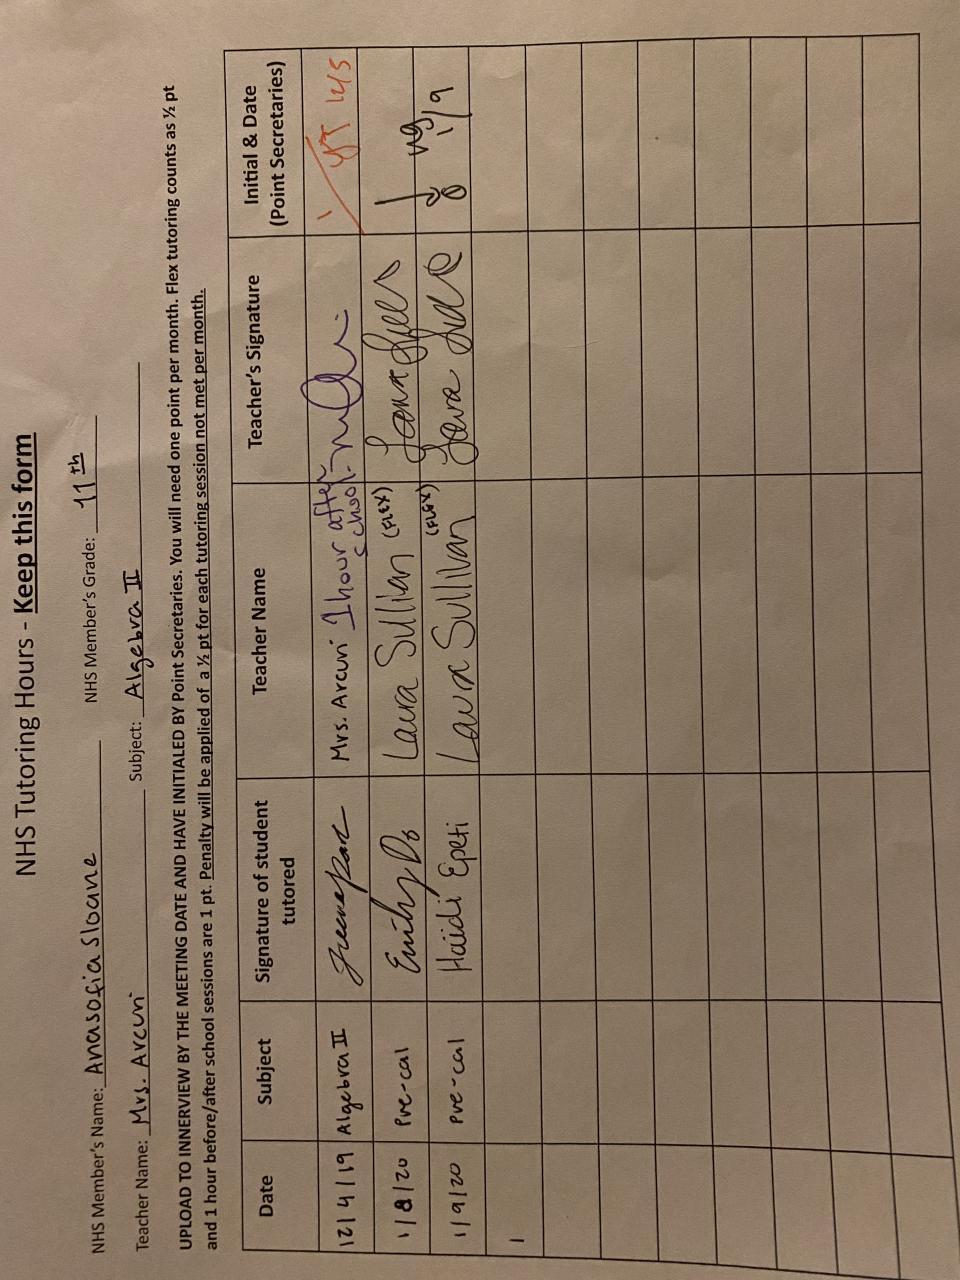 NHS Tutoring Hours - Keep this form
NHS Member's Name: Anasofia Sloane NHS Member's Grade: 11th
Teacher Name: Mrs. Arcuri Subject: Algebra II
UPLOAD TO INNERVIEW BY THE MEETING DATE AND HAVE INITIALED BY Point Secretaries. You will need one point per month. Flex tutoring counts as ½ pt
and 1 hour before/after school sessions are 1 pt. Penalty will be applied of a ½ pt for each tutoring session not met per month.
Date Subject Signature of student tutored Teacher Name Teacher's Signature Initial & Date (Point Secretaries)
12/4/19 Algebra II Mrs. Arcuri 1 hour after school.
1/8/20 Pre-cal Emily Laura Sullivan (FLEX)
1/9/20 Pre-cal Haidi Epeti Laura Sullivan (FLEX) 1/9